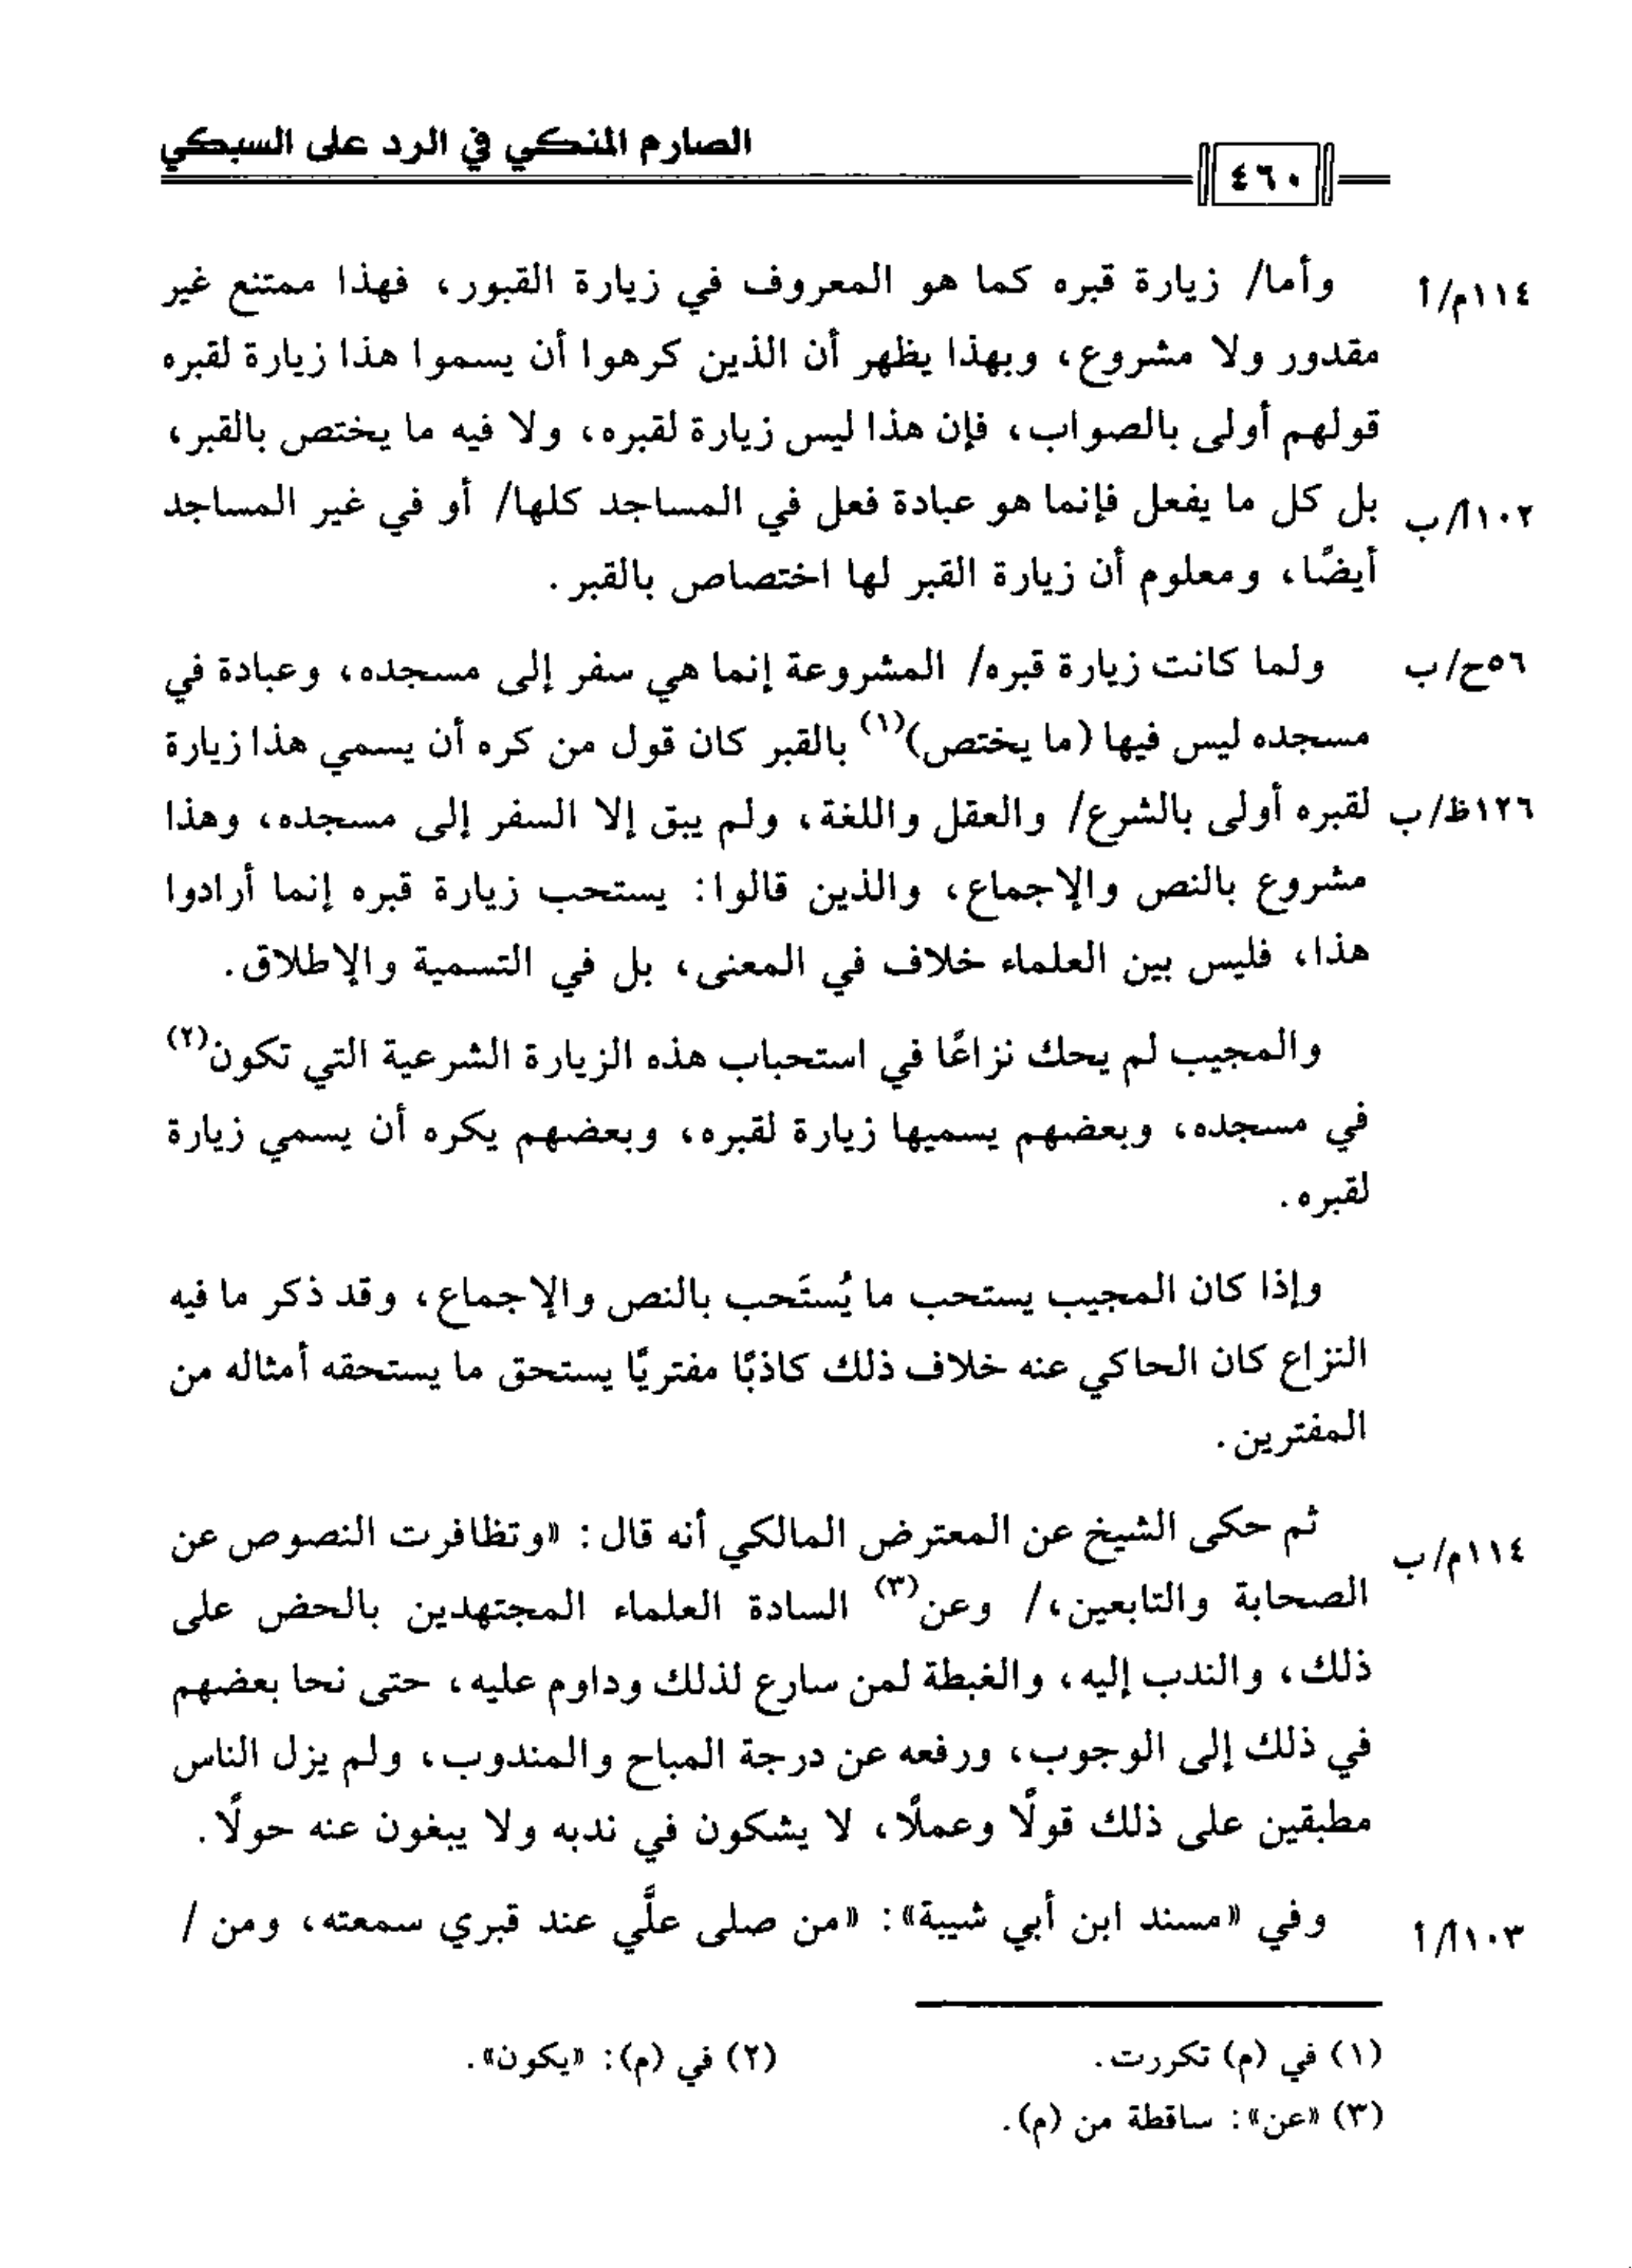 الصارم المنكي في الرد على السبكي
٤٦٠
١١٤م/أ وأما/ زيارة قبره كما هو المعروف في زيارة القبور، فهذا ممتنع غير
مقدور ولا مشروع، وبهذا يظهر أن الذين كرهوا أن يسموا هذا زيارة لقبره
قولهم أولى بالصواب، فإن هذا ليس زيارة لقبره، ولا فيه ما يختص بالقبر،
١٠٢أ/ب بل كل ما يفعل فإنما هو عبادة فعل في المساجد كلها/ أو في غير المساجد
أيضًا، ومعلوم أن زيارة القبر لها اختصاص بالقبر.
٥٦ح/ب ولما كانت زيارة قبره/ المشروعة إنما هي سفر إلى مسجده، وعبادة في
مسجده ليس فيها (ما يختص)(١) بالقبر كان قول من كره أن يسمي هذا زيارة
١٢٦ظ/ب لقبره أولى بالشرع/ والعقل واللغة، ولم يبق إلا السفر إلى مسجده، وهذا
مشروع بالنص والإجماع، والذين قالوا: يستحب زيارة قبره إنما أرادوا
هذا، فليس بين العلماء خلاف في المعنى، بل في التسمية والإطلاق.
والمجيب لم يحك نزاعًا في استحباب هذه الزيارة الشرعية التي تكون(٢)
في مسجده، وبعضهم يسميها زيارة لقبره، وبعضهم يكره أن يسمي زيارة
لقبره.
وإذا كان المجيب يستحب ما يُستَحب بالنص والإجماع، وقد ذكر ما فيه
النزاع كان الحاكي عنه خلاف ذلك كاذبًا مفتريًا يستحق ما يستحقه أمثاله من
المفترين.
١١٤م/ب ثم حكى الشيخ عن المعترض المالكي أنه قال: «وتظافرت النصوص عن
الصحابة والتابعين،/ وعن(٣) السادة العلماء المجتهدين بالحض على
ذلك، والندب إليه، والغبطة لمن سارع لذلك وداوم عليه، حتى نحا بعضهم
في ذلك إلى الوجوب، ورفعه عن درجة المباح والمندوب، ولم يزل الناس
مطبقين على ذلك قولًا وعملًا، لا يشكون في ندبه ولا يبغون عنه حولًا.
١٠٣أ/أ وفي «مسند ابن أبي شيبة»: «من صلى علَّي عند قبري سمعته، ومن /
(١) في (م) تكررت. (٢) في (م): «يكون».
(٣) «عن»: ساقطة من (م).